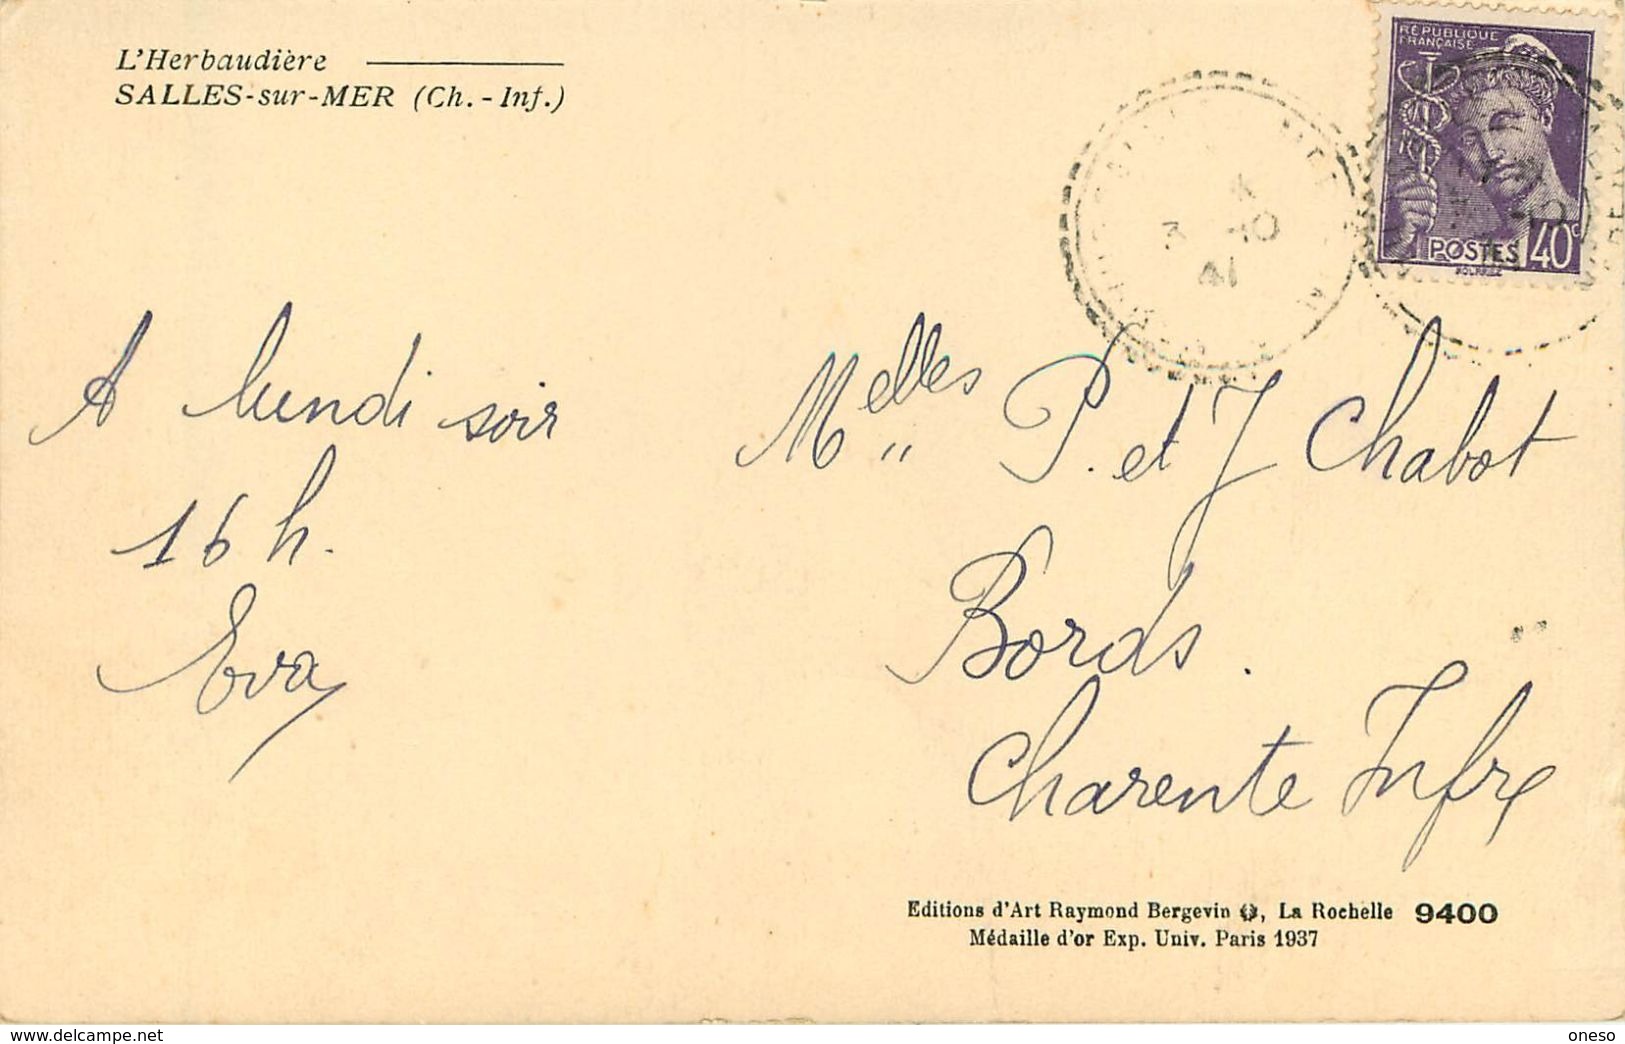 L'Herbaudière
SALLES-sur-MER (Ch.-Inf.)
RÉPUBLIQUE
FRANÇAISE
POSTES 40c
3 -10
41
A lundi soir
16 h.
Eva
Melles P. et J Chabot
Bords.
Charente Infre
Editions d'Art Raymond Bergevin, La Rochelle 9400
Médaille d'or Exp. Univ. Paris 1937
https://www.delcampe.net
oneso